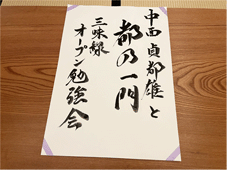 中西貞都雄と
都の一門
三味線
オープン勉強会